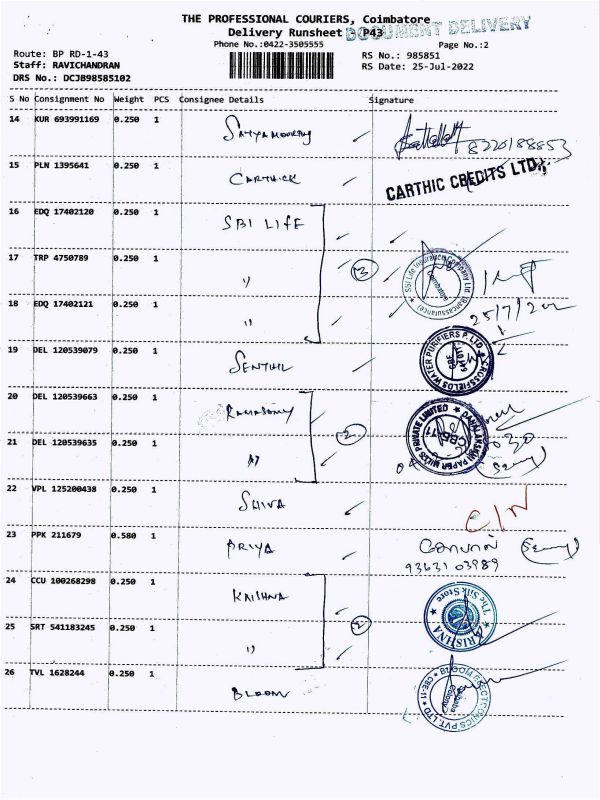 THE PROFESSIONAL COURIERS, Coimbatore
DOCUMENT DELIVERY
Delivery Runsheet P43
Phone No.:0422-3505555
Page No.:2
Route: BP RD-1-43
RS No.: 985851
Staff: RAVICHANDRAN
RS Date: 25-Jul-2022
DRS No.: DCJB98585102
S No Consignment No Weight PCS Consignee Details Signature
14 KUR 693991169 0.250 1 SATYAMOORTHY 8220188853
15 PLN 1395641 0.250 1 CARTHICK CARTHIC CREDITS LTD.,
16 EDQ 17402120 0.250 1 SBI LIFE
17 TRP 4750789 0.250 1 " 3 SBI Life Insurance Company Ltd (Bancassurance) Coimbatore
18 EDQ 17402121 0.250 1 " 25/7/22
19 DEL 120539079 0.250 1 SENTHIL CROSSFIELDS WATER PURIFIERS P. LTD. CBE
20 DEL 120539663 0.250 1 RAMASAMY 2 DHANALAKSHMI PAPER MILLS PRIVATE LIMITED CBE-11
21 DEL 120539635 0.250 1
22 VPL 125200438 0.250 1 SHIVA C/N
23 PPK 211679 0.580 1 PRIYA
93631 03989
24 CCU 100268298 0.250 1 KRISHNA KRISHNA The Silk Store
25 SRT 541183245 0.250 1 " 2
26 TVL 1628244 0.250 1 BLOOM BLOOM ELECTRONICS PVT. LTD CBE-11 Colony